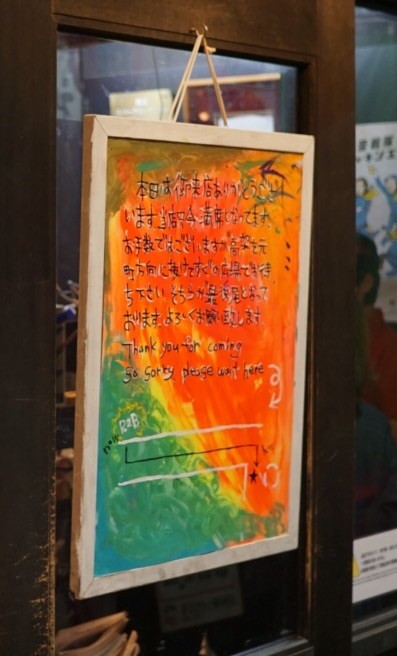 本日は御来店ありがとうござ
います。当店只今満席となってます。
お手数ではございますが高架を元
町方向に抜けてすぐの広場でお待
ち下さい そちらが最後尾となって
おります。よろしくお願い致します。
Thank you for coming
So sorry, please wait here
R2B
now